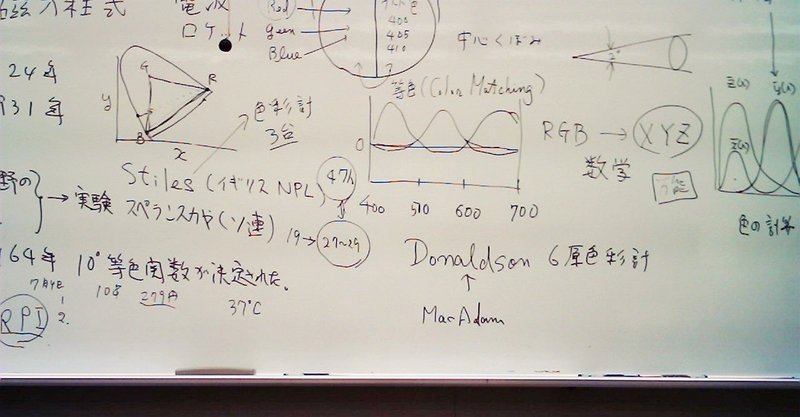 ロケット
Red
Green
Blue
400
405
410
中心くぼみ
2°
24年
931年
y
x
G
R
B
色彩計
3台
等色(Color Matching)
0
400
510
600
700
RGB → XYZ
数学
z̄(λ)
ȳ(λ)
x̄(λ)
色の計算
野の
→ 実験
Stiles (イギリス NPL) 47人
スペランスカヤ(ソ連) 19→ 27~29
Donaldson 6原色彩計
↑
MacAdam
964年 10°等色関数が決定された。
7月4日
108
279円
37°C
1
2.
RPI